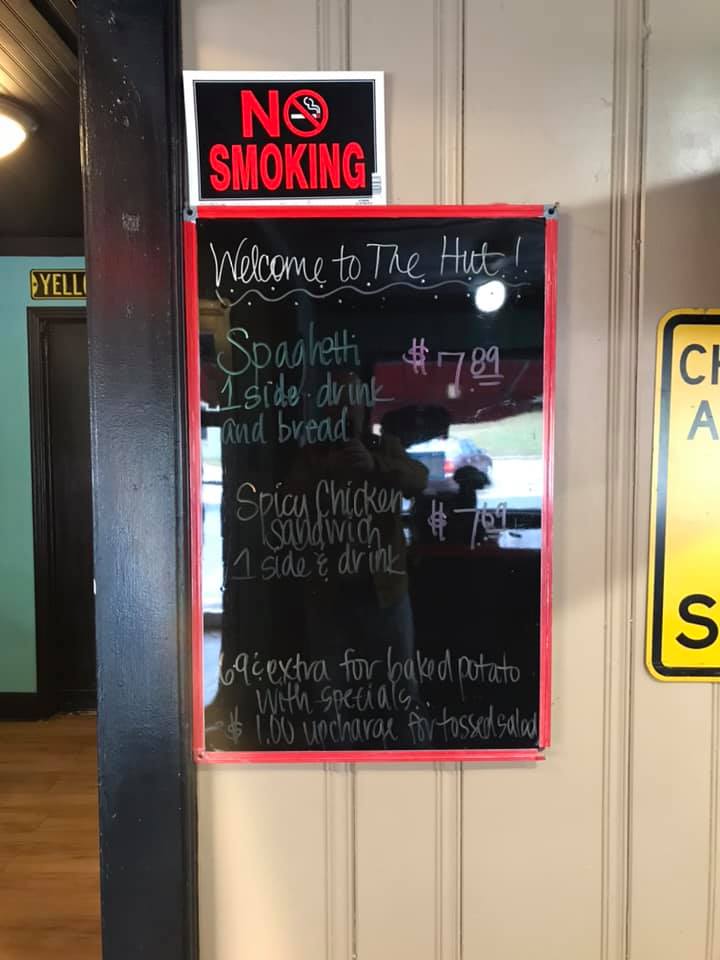 NO
SMOKING
Welcome to The Hut!
Spaghetti $7.89
1 side drink
and bread
Spicy Chicken
Sandwich $7.69
1 side & drink
69¢ extra for baked potato
with specials..
$1.00 upcharge for tossed salad
YELL
CH
A
S